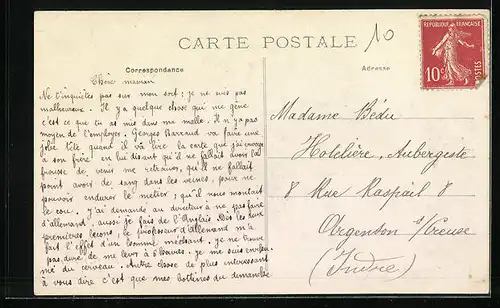 10
CARTE POSTALE
RÉPUBLIQUE FRANÇAISE
10c
POSTES
Correspondance
Adresse
Chère maman
Ne t'inquiètes pas sur mon sort; je ne suis pas
malheureux. Il y a quelque chose qui me gêne
c'est ce que tu as mis dans ma malle. Il n'y a pas
moyen de l'employer. Georges Barraud va faire une
jolie tête quand il va lire la carte que j'ai envoyé
a son frère en lui disant qu'il ne fallait avoir la
frousse de venir me retrouver, qu'il ne fallait
point avoir de sang dans les veines, pour ne
pouvoir endurer le métier; qu'il nous montait
le cou. J'ai demandé au directeur à ne pas faire
d'allemand, aussi je fais de l'Anglais. Dès les deux
premières leçons, le professeur d'Allemand m'a
fait l'effet d'un homme méchant. Je ne trouve
pas dur de me lever à 5 heures. Je me suis
me du cerveau. Autre chose de plus intéressant
à vous dire c'est que mes bottines du dimanche
Madame Bédu
Hotelière, Aubergiste
8 Rue Raspail 8
Argenton s/Creuse
(Indre)